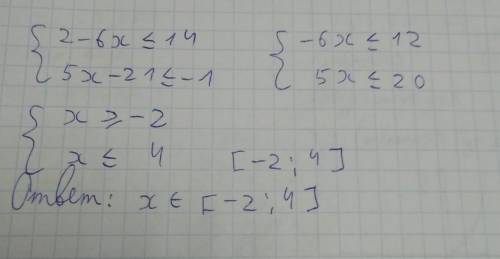 { 2-6x ≤ 14    { -6x ≤ 12
5x-21 ≤ -1    5x ≤ 20
{ x ≥ -2
x ≤ 4    [-2; 4]
Ответ: x ∈ [-2; 4]